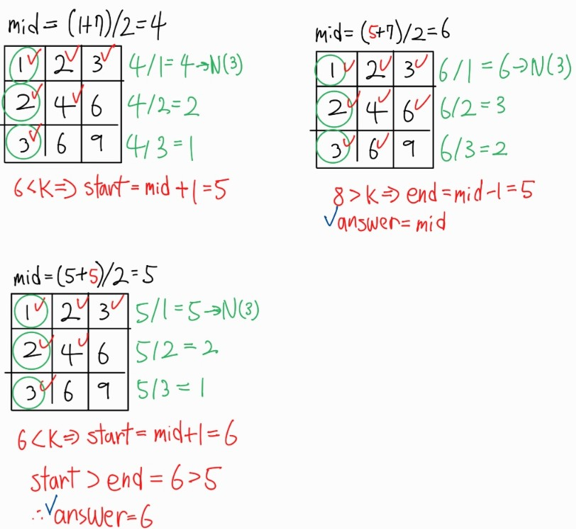 mid = (1+7)/2 = 4
1 2 3 4/1 = 4→N(3)
2 4 6 4/2 = 2
3 6 9 4/3 = 1
6 < K ⇒ start = mid + 1 = 5
mid = (5+7)/2 = 6
1 2 3 6/1 = 6→N(3)
2 4 6 6/2 = 3
3 6 9 6/3 = 2
8 > K ⇒ end = mid - 1 = 5
✓answer = mid
mid = (5+5)/2 = 5
1 2 3 5/1 = 5→N(3)
2 4 6 5/2 = 2
3 6 9 5/3 = 1
6 < K ⇒ start = mid + 1 = 6
start > end = 6 > 5
∴ ✓answer = 6